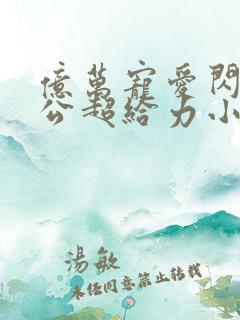 億萬寵愛閃
公超給力小
湯敏
未經同意禁止轉載